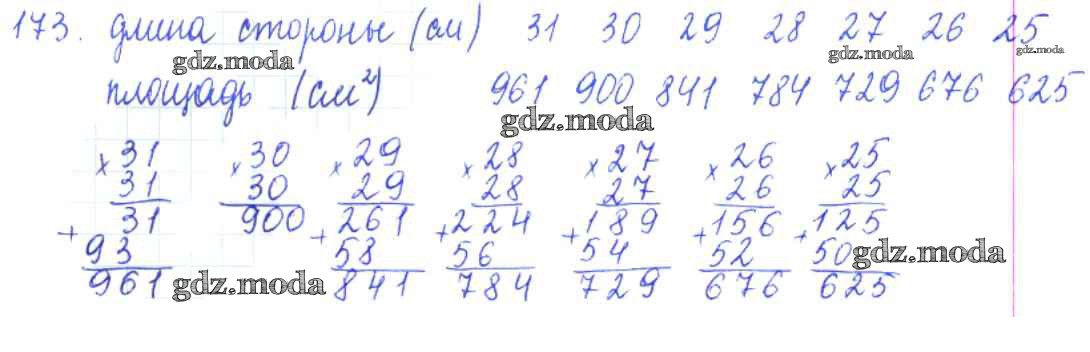 173. длина стороны (см) 31 30 29 28 27 26 25
gdz.moda gdz.moda gdz.moda
площадь (см²) 961 900 841 784 729 676 625
gdz.moda
× 31 × 30 × 29 × 28 × 27 × 26 × 25
31 30 29 28 27 26 25
+ 31 900 + 261 + 224 + 189 + 156 + 125
93 58 56 54 52 50 gdz.moda
961 gdz.moda 841 784 729 676 625